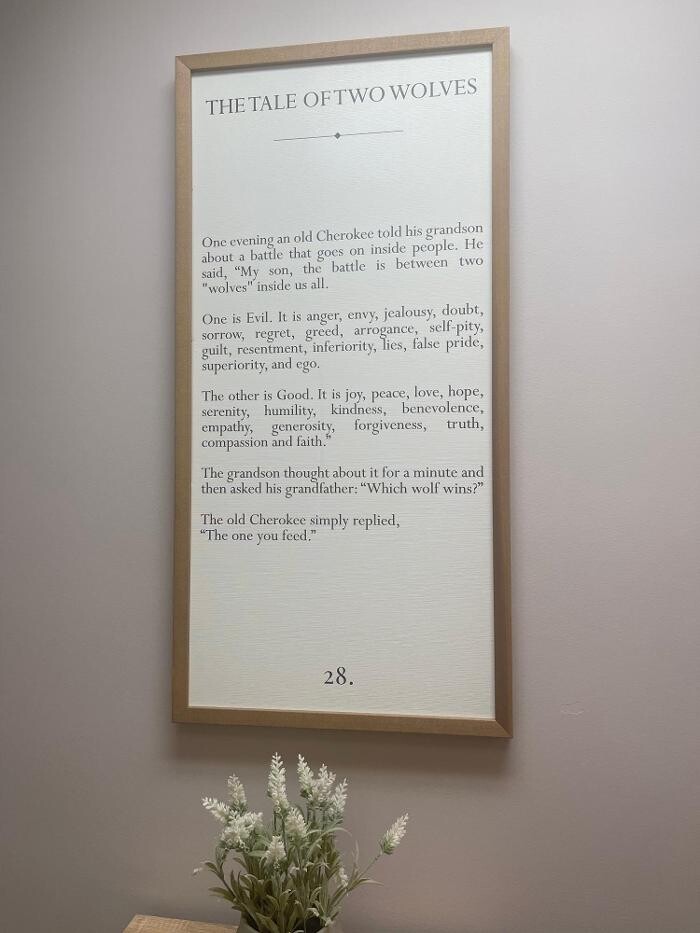 THE TALE OF TWO WOLVES
One evening an old Cherokee told his grandson
about a battle that goes on inside people. He
said, “My son, the battle is between two
"wolves" inside us all.
One is Evil. It is anger, envy, jealousy, doubt,
sorrow, regret, greed, arrogance, self-pity,
guilt, resentment, inferiority, lies, false pride,
superiority, and ego.
The other is Good. It is joy, peace, love, hope,
serenity, humility, kindness, benevolence,
empathy, generosity, forgiveness, truth,
compassion and faith.”
The grandson thought about it for a minute and
then asked his grandfather: “Which wolf wins?”
The old Cherokee simply replied,
“The one you feed.”
28.